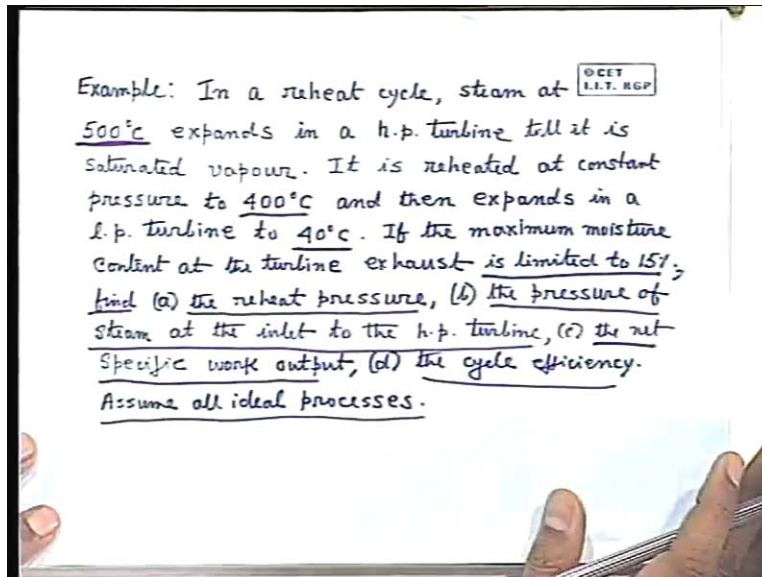 Example: In a reheat cycle, steam at
© CET
I.I.T. KGP
500°C expands in a h.p. turbine till it is
saturated vapour. It is reheated at constant
pressure to 400°C and then expands in a
l.p. turbine to 40°C. If the maximum moisture
content at the turbine exhaust is limited to 15%,
find (a) the reheat pressure, (b) the pressure of
steam at the inlet to the h.p. turbine, (c) the net
specific work output, (d) the cycle efficiency.
Assume all ideal processes.